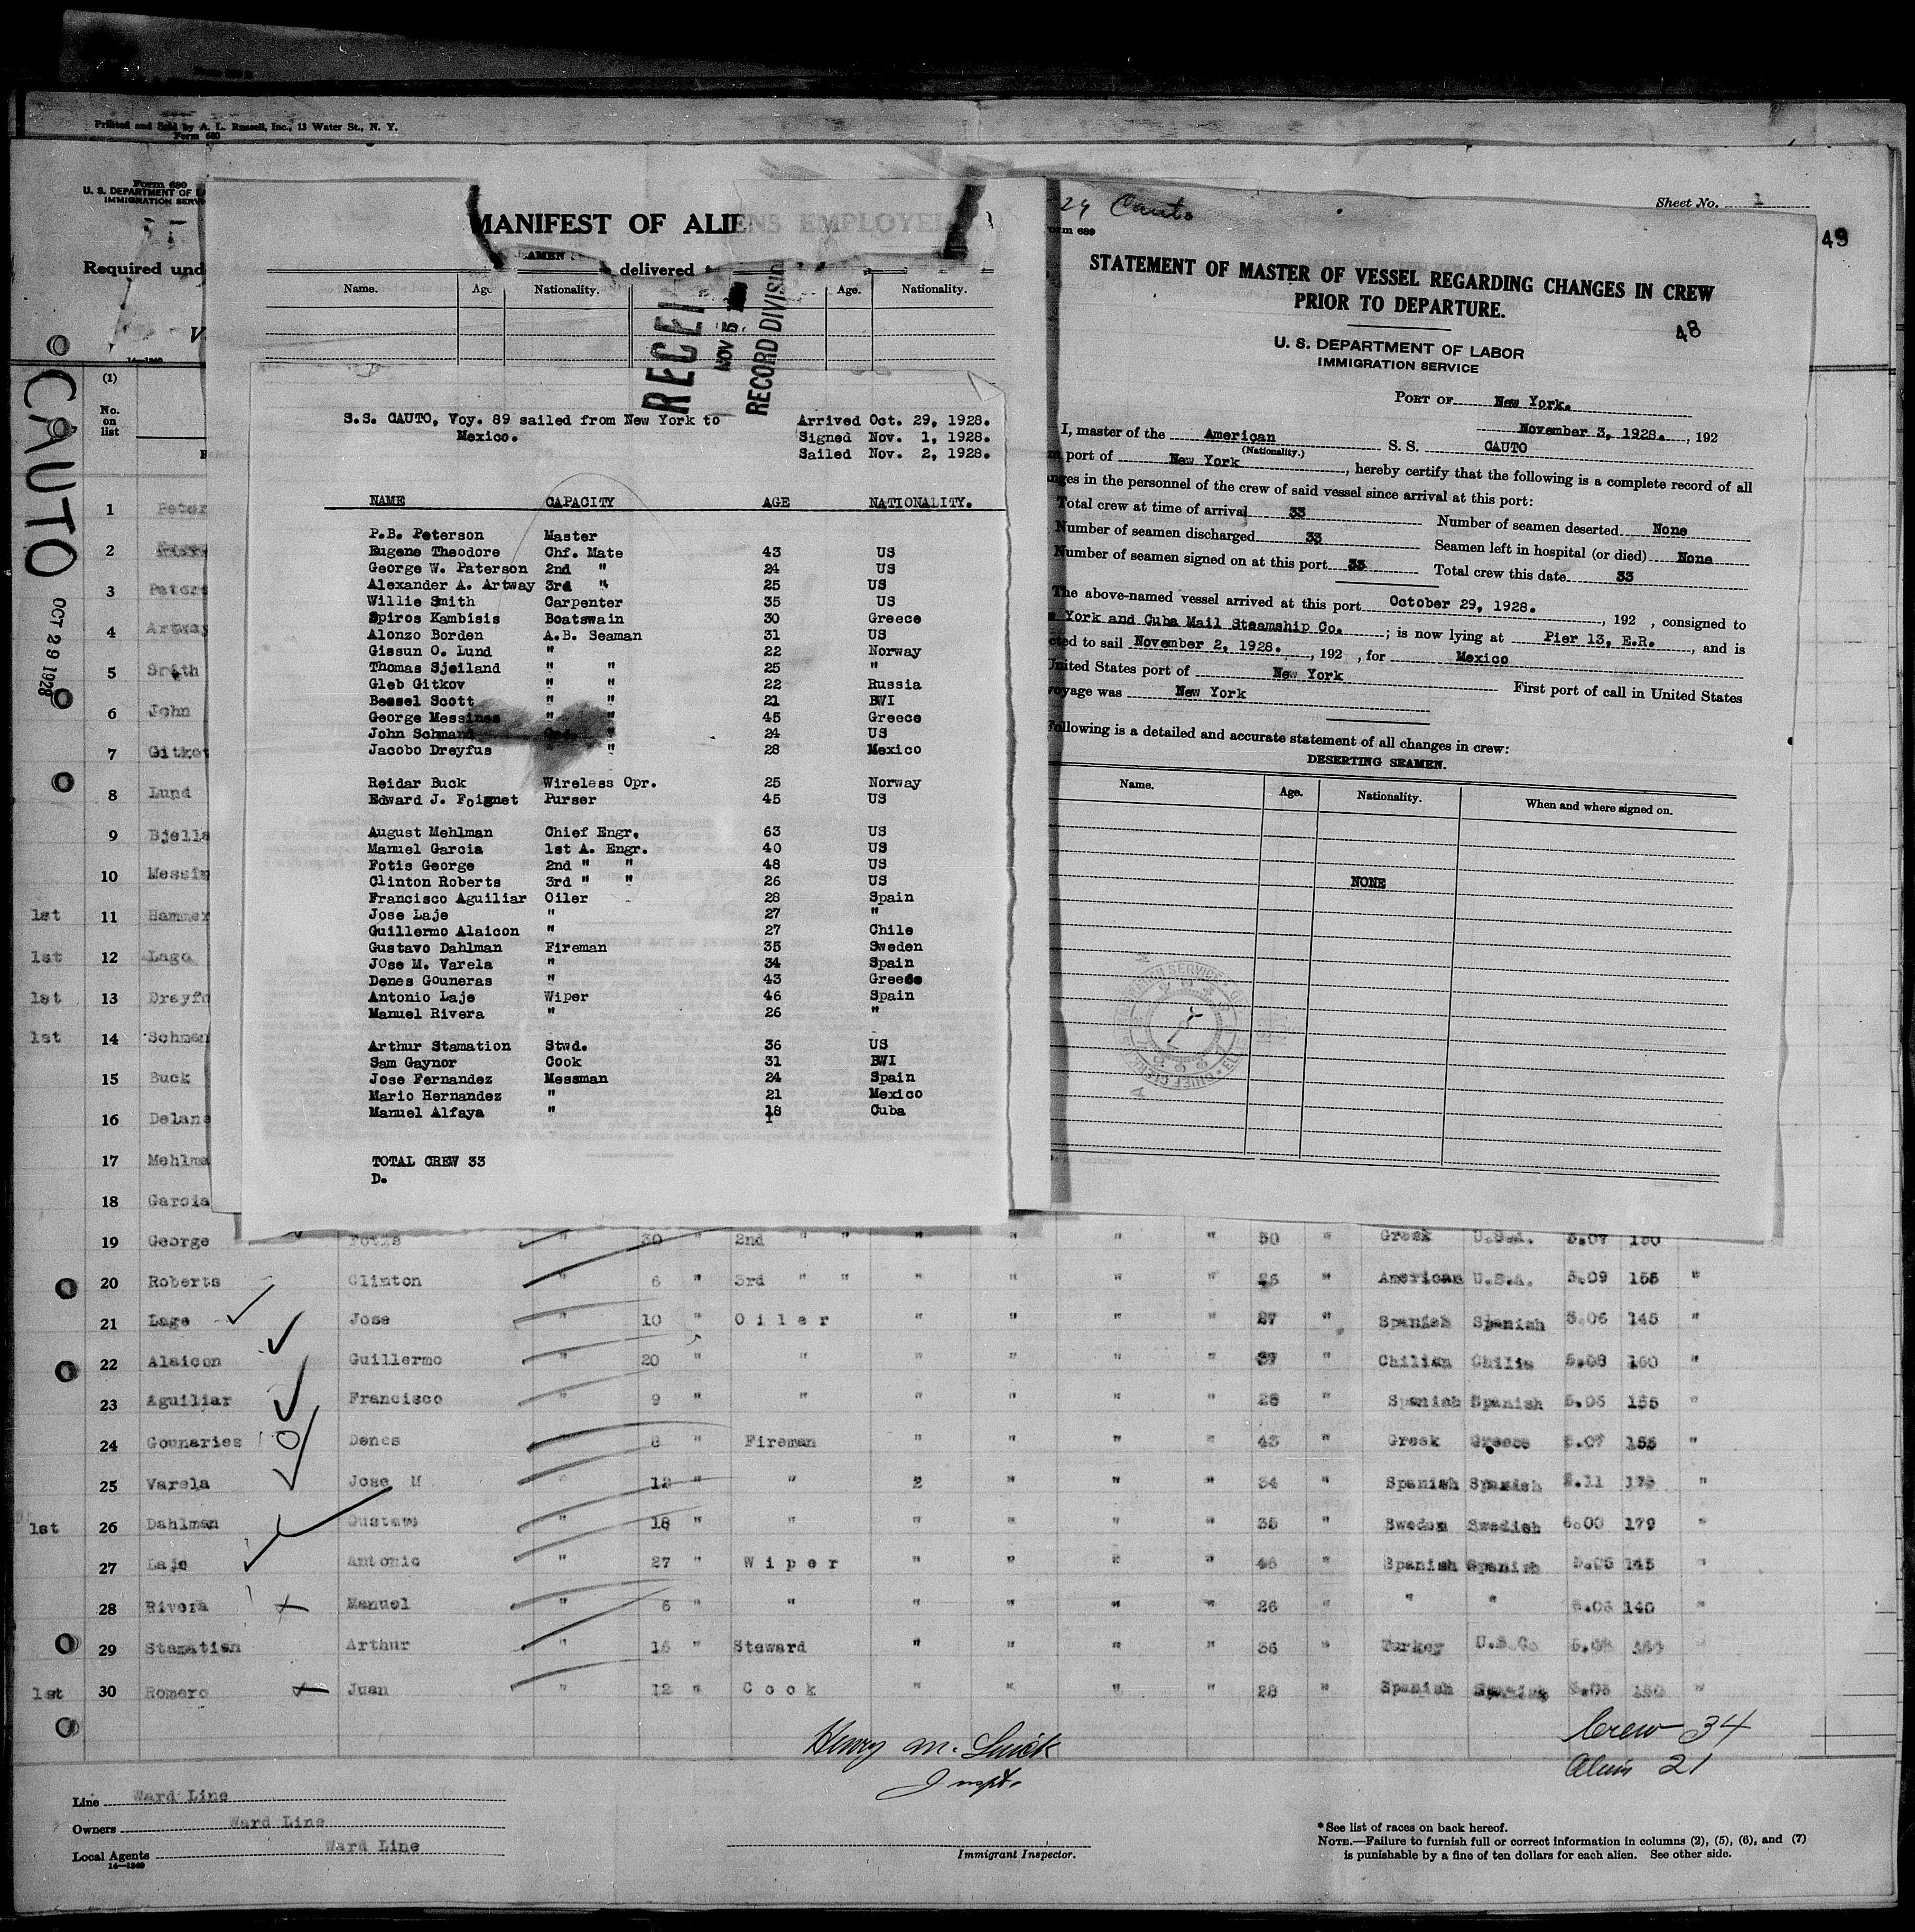 Printed and Sold by A. L. Russell, Inc., 13 Water St., N. Y.
Form 680
Form 680
U. S. DEPARTMENT OF
IMMIGRATION SERV
Required und
V
14—1240
CAUTO
OCT 29 1928
(1)
No. on list
MANIFEST OF ALIENS EMPLOYED
AMEN
delivered
Name. Age Nationality. Age. Nationality.
RECEI
NOV 5
RECORD DIVISI
S.S. CAUTO, Voy. 89 sailed from New York to Mexico.
Arrived Oct. 29, 1928.
Signed Nov. 1, 1928.
Sailed Nov. 2, 1928.
NAME CAPACITY AGE NATIONALITY.
P.B. Peterson Master
Eugene Theodore Chf. Mate 43 US
George W. Paterson 2nd " 24 US
Alexander A. Artway 3rd " 25 US
Willie Smith Carpenter 35 US
Spiros Kambisis Boatswain 30 Greece
Alonzo Borden A.B. Seaman 31 US
Gissun O. Lund " 22 Norway
Thomas Sjeiland " " 25 "
Gleb Gitkov " " 22 Russia
Bessel Scott " " 21 BWI
George Messines " " 45 Greece
John Schmand " 24 US
Jacobo Dreyfus " " 28 Mexico
Reidar Buck Wireless Opr. 25 Norway
Edward J. Foignet Purser 45 US
August Mehlman Chief Engr. 63 US
Manuel Garcia 1st A. Engr. 40 US
Fotis George 2nd " " 48 US
Clinton Roberts 3rd " " 26 US
Francisco Aguiliar Oiler 28 Spain
Jose Laje " 27 "
Guillermo Alaicon " 27 Chile
Gustavo Dahlman Fireman 35 Sweden
JOse M. Varela " 34 Spain
Denes Gouneras " 43 Greece
Antonio Laje Wiper 46 Spain
Manuel Rivera " 26 "
Arthur Stamation Stwd. 36 US
Sam Gaynor Cook 31 BWI
Jose Fernandez Messman 24 Spain
Mario Hernandez " 21 Mexico
Manuel Alfaya " 18 Cuba
TOTAL CREW 33
D.
Sheet No. 1
49
29 Cauto
orm 689
STATEMENT OF MASTER OF VESSEL REGARDING CHANGES IN CREW
PRIOR TO DEPARTURE.
48
U. S. DEPARTMENT OF LABOR
IMMIGRATION SERVICE
PORT OF New York.
November 3, 1928. , 192
I, master of the American S. S. CAUTO
(Nationality.)
port of New York , hereby certify that the following is a complete record of all
nges in the personnel of the crew of said vessel since arrival at this port:
Total crew at time of arrival 33 Number of seamen deserted None
Number of seamen discharged 33 Seamen left in hospital (or died) None
Number of seamen signed on at this port 33 Total crew this date 33
The above-named vessel arrived at this port October 29, 1928. , 192 , consigned to
York and Cuba Mail Steamship Co. ; is now lying at Pier 13, E.R. , and is
cted to sail November 2, 1928. , 192 , for Mexico
United States port of New York First port of call in United States
voyage was New York
ollowing is a detailed and accurate statement of all changes in crew:
DESERTING SEAMEN.
Name. Age. Nationality. When and where signed on.
NONE
1 Peter
2
3 Paters
4 Artway
5 Smith
6 John
7 Gitkov
8 Lund
9 Bjella
10 Messin
1st 11 Hammer
1st 12 Lago
1st 13 Dreyfu
1st 14 Schman
15 Buck
16 Delane
17 Mehlma
18 Garcia
19 George Fotis " 30 " 2nd " " " " " " 50 " Greek U.S.A. 5.07 150
20 Roberts Clinton " 6 " 3rd " " " " " " 26 " American U.S.A. 5.09 155 "
21 Lage Jose " 10 " Oiler " " " " 27 " Spanish Spanish 5.06 145 "
22 Alaicon Guillermo " 20 " " " " " " 37 " Chilian Chilis 5.08 160 "
23 Aguiliar Francisco " 9 " " " " " " 28 " Spanish Spanish 5.05 155 "
24 Gounaries Denes " 8 " Fireman " " " " 43 " Greek Greece 5.07 155 "
25 Varela Jose M " 12 " " 2 " " " 34 " Spanish Spanish 5.11 "
1st 26 Dahlman Gustavo " 18 " " " " " " 35 " Sweden Swedish 6.00 179 "
27 Laje Antonio " 27 " Wiper " " " " 46 " Spanish Spanish 5.05 145 "
28 Rivera Manuel " 6 " " " " " " 26 " " " 5.05 140 "
29 Stamatian Arthur " 15 " Steward " " " " 36 " Turkey "
1st 30 Romero Juan " 12 " Cook " " " " 28 " Spanish Spanish "
Henry M.
Inspt.
Crew 34
Alien 21
Line Ward Line
Owners Ward Line
Local Agents Ward Line
14—1240
Immigrant Inspector.
*See list of races on back hereof.
NOTE.—Failure to furnish full or correct information in columns (2), (5), (6), and (7)
is punishable by a fine of ten dollars for each alien. See other side.